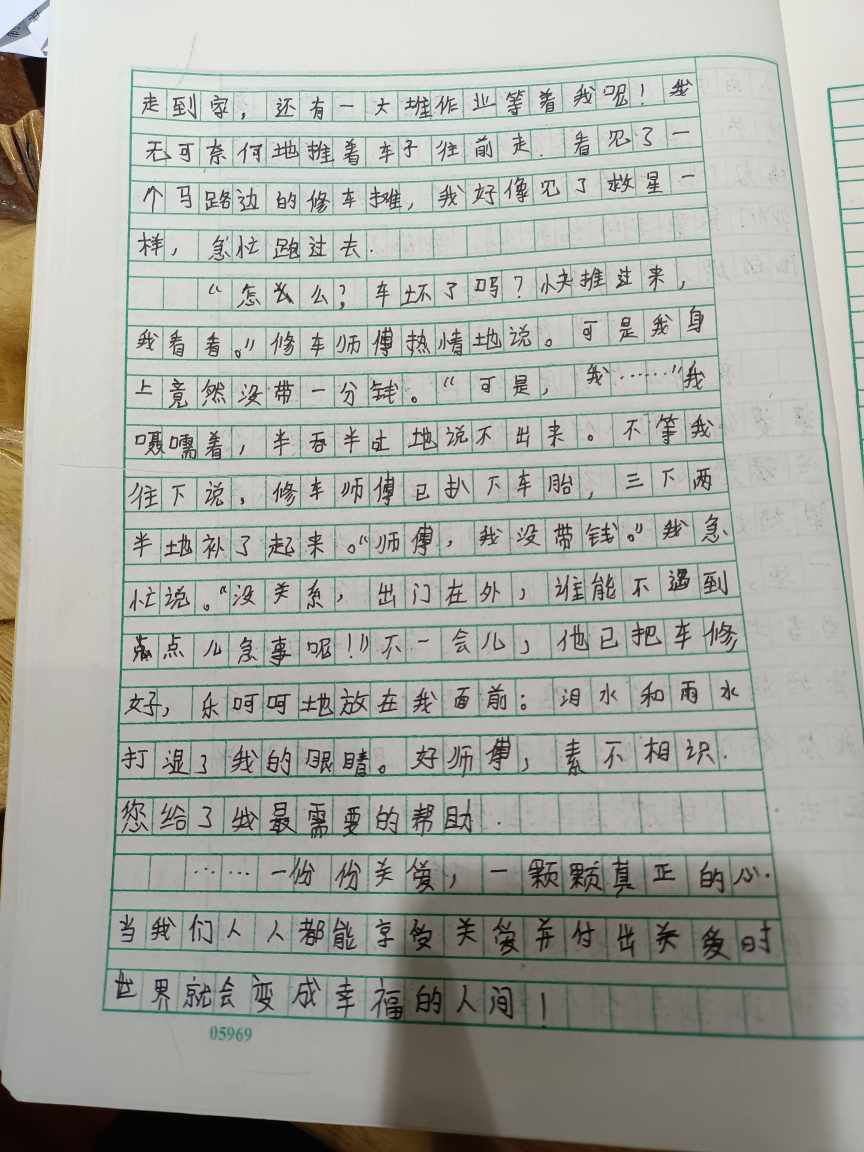 走到家，还有一大堆作业等着我呢！我
无可奈何地推着车子往前走．看见了一
个马路边的修车摊，我好像见了救星一
样，急忙跑过去．
“怎么么？车坏了吗？快推过来，
我看看。”修车师傅热情地说。可是我身
上竟然没带一分钱。“可是，我……”我
嗫嚅着，半吞半吐地说不出来。不等我
往下说，修车师傅已扒下车胎，三下两
半地补了起来。“师傅，我没带钱。”我急
忙说。“没关系，出门在外，谁能不遇到
点儿急事呢！”不一会儿，他已把车修
好，乐呵呵地放在我面前：泪水和雨水
打湿了我的眼睛。好师傅，素不相识．
您给了我最需要的帮助．
……一份份关爱，一颗颗真正的心．
当我们人人都能享受关爱并付出关爱时
世界就会变成幸福的人间！
05969